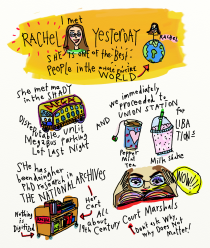 I met
RACHEL YESTERDAY
RACHEL
SHE IS ONE of the BEST
PEOPLE in the whole entire
WORLD
She met me
in the SHADY
MEGA
DISREPUTABLE, UNLIT
MegaBus Parking
Lot Last Night
and
immediately
we proceeded to
UNION STATION
for
LIBA
TION:
Pepper
Mint
Tea
Milk Shake
She has
been doing her
PhD research at
THE NATIONAL ARCHIVES
WOW!
Nothing
is
Digitized
Her
Cart
ALL
about
19th Century Court Marshals
Dont ask Why.
Why Does it
Matter?